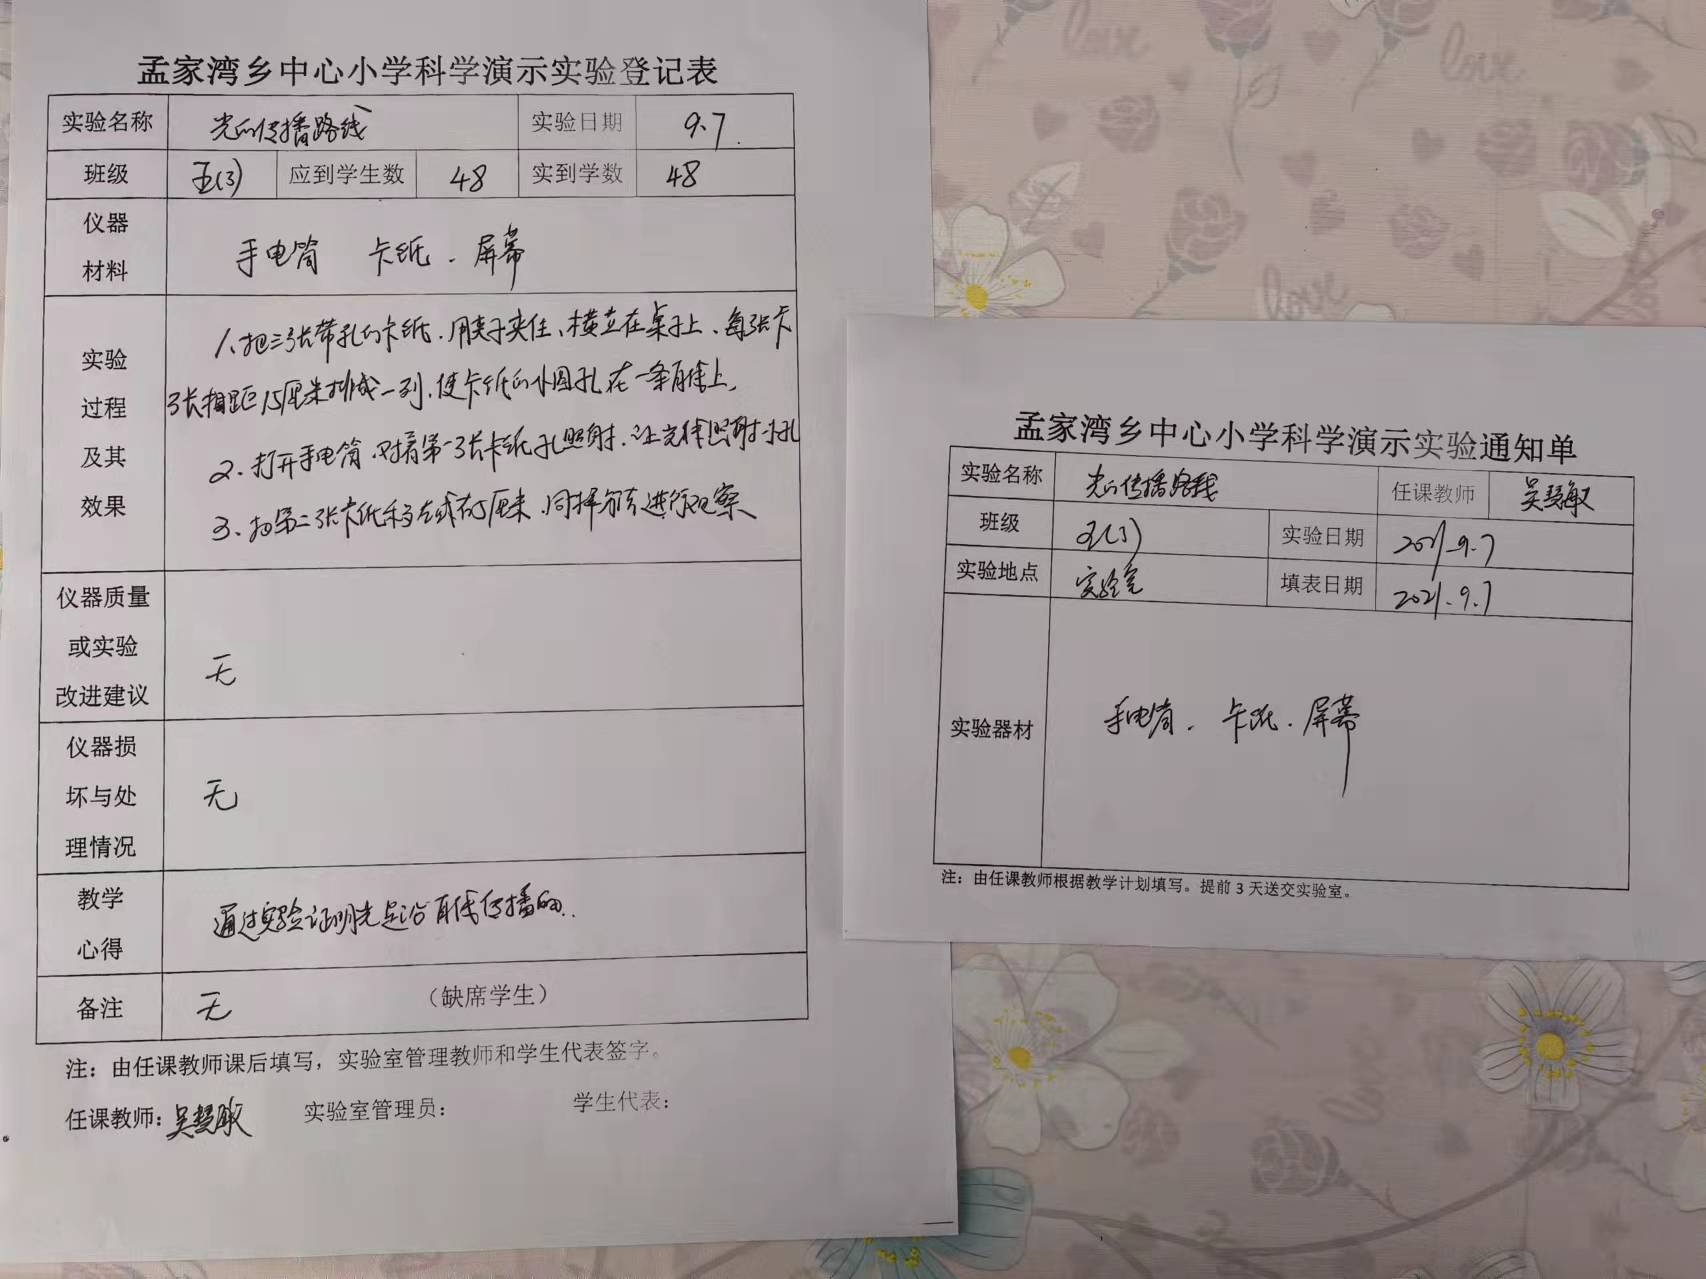 孟家湾乡中心小学科学演示实验登记表
实验名称 光的传播路线 实验日期 9.7.
班级 五(3) 应到学生数 48 实到学数 48
仪器
材料
手电筒 卡纸.屏幕
实验
过程
及其
效果
1、把三张带孔的卡纸.用夹子夹住、横立在桌子上、每张卡
张相距15厘米排成一列.使卡纸的小圆孔在一条直线上。
2.打开手电筒.对着第一张卡纸孔照射.让光
3.把第二张卡纸移左或右5厘米.同样方法进行观察
仪器质量
或实验
改进建议
无
仪器损
坏与处
理情况
无
教学
心得
通过实验证明光是沿直线传播的.
备注 无 （缺席学生）
注：由任课教师课后填写，实验室管理教师和学生代表签字。
任课教师：吴慧敏 实验室管理员： 学生代表：
孟家湾乡中心小学科学演示实验通知单
实验名称 光的传播路线 任课教师 吴慧敏
班级 五(3) 实验日期 2021.9.7
实验地点 实验室 填表日期 2021.9.7
实验器材 手电筒.卡纸.屏幕
注：由任课教师根据教学计划填写。提前 3 天送交实验室。
love
love
love